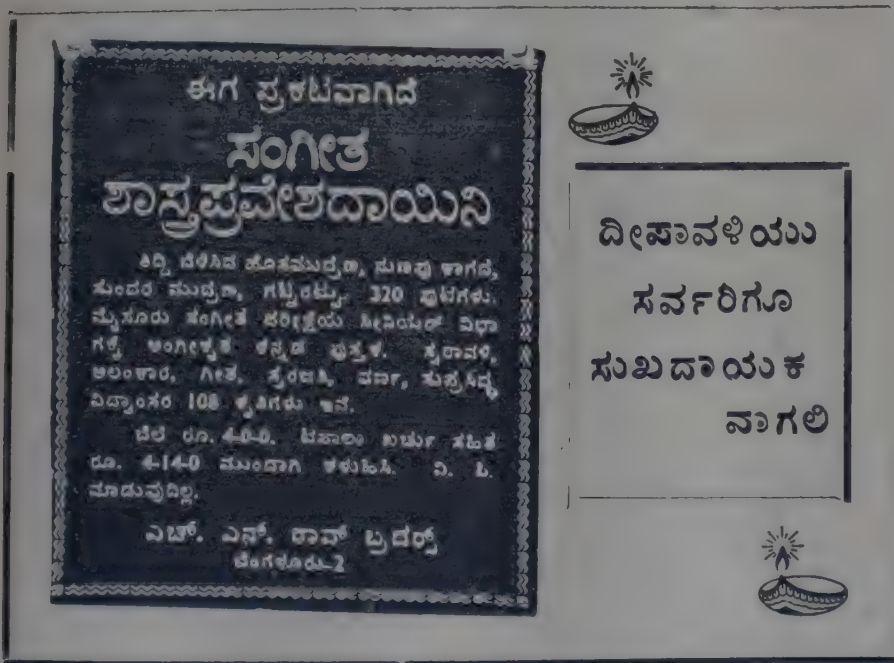 ಈಗ ಪ್ರಕಟವಾಗಿದೆ
ಸಂಗೀತ
ಶಾಸ್ತ್ರಪ್ರವೇಶದಾಯಿನಿ
ತಿದ್ದಿ ಬೆಳೆಸಿದ ಹೊಸಮುದ್ರಣ, ನುಣುಪು ಕಾಗದ,
ಸುಂದರ ಮುದ್ರಣ, ಗಟ್ಟಿರಟ್ಟು, 320 ಪುಟಗಳು.
ಮೈಸೂರು ಸಂಗೀತ ಪರೀಕ್ಷೆಯ ಸೀನಿಯರ್ ವಿಭಾ
ಗಕ್ಕೆ ಅಂಗೀಕೃತ ಕನ್ನಡ ಪುಸ್ತಕ. ಸ್ವರಾವಳಿ,
ಅಲಂಕಾರ, ಗೀತ, ಸ್ವರಜತಿ, ವರ್ಣ, ಸುಪ್ರಸಿದ್ಧ
ವಿದ್ವಾಂಸರ 108 ಕೃತಿಗಳು ಇವೆ.
ಬೆಲೆ ರೂ. 4-0-0. ಟಪಾಲು ಖರ್ಚು ಸಹಿತ
ರೂ. 4-14-0 ಮುಂದಾಗಿ ಕಳುಹಿಸಿ. ವಿ. ಪಿ.
ಮಾಡುವುದಿಲ್ಲ.
ಎಚ್. ಎನ್. ರಾವ್ ಬ್ರದರ್ಸ್
ಬೆಂಗಳೂರು-2
ದೀಪಾವಳಿಯು
ಸರ್ವರಿಗೂ
ಸುಖದಾಯಕ
ವಾಗಲಿ